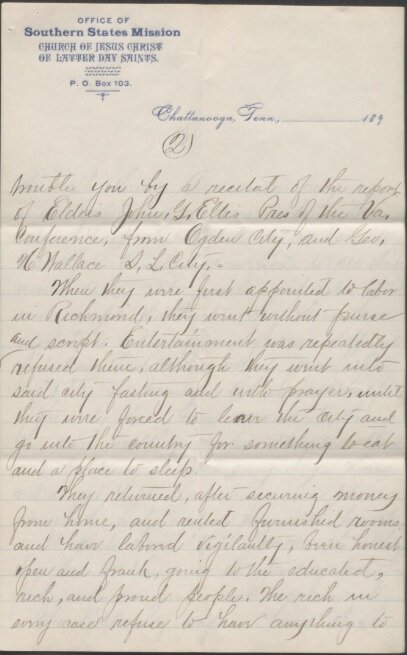 OFFICE OF
Southern States Mission
CHURCH OF JESUS CHRIST
OF LATTER DAY SAINTS.
P. O. Box 103.
Chattanooga, Tenn., 189
(2)
trouble you by a recital of the report
of Elders John. G. Ellis Pres of the Va.
Conference, from Ogden City, and Geo.
H Wallace S. L. City.-
When they were first appointed to labor
in Richmond, they went without purse
and script. Entertainment was repeatedly
refused them, although they went into
said city fasting and with prayer, until
they were forced to leave the city and
go into the country for something to eat
and a place to sleep.
They returned, after securing money
from home, and rented furnished rooms
and have labored vigilantly, been honest
open and frank, going to the educated,
rich, and proud people. The rich in
every case refuse to have anything to